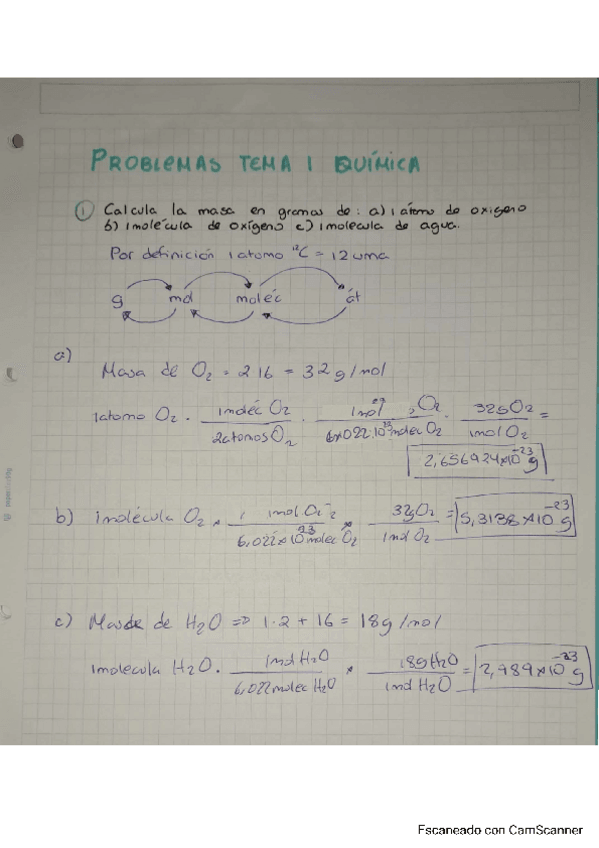 PROBLEMAS TEMA 1 QUÍMICA
① Calcula la masa en gramos de: a) 1 átomo de oxigeno
b) 1 molécula de oxígeno c) 1 molecula de agua.
Por definición 1 atomo ¹²C = 12 uma
g mol moléc át
a)
Masa de O₂ = 2·16 = 32 g/mol
1 atomo O₂ · 1 moléc O₂ / 2 atomos O₂ · 1 mol O₂ / 6,022·10²³ molec O₂ · 32 g O₂ / 1 mol O₂ =
2,656924×10⁻²³ g
b) 1 molécula O₂ × 1 mol O₂ / 6,022×10²³ molec O₂ × 32 g O₂ / 1 mol O₂ = 5,3138×10⁻²³ g
c) de H₂O => 1·2 + 16 = 18 g/mol
1 molecula H₂O · 1 mol H₂O / 6,022 molec H₂O × 18 g H₂O / 1 mol H₂O = 2,989×10⁻²³ g
Escaneado con CamScanner